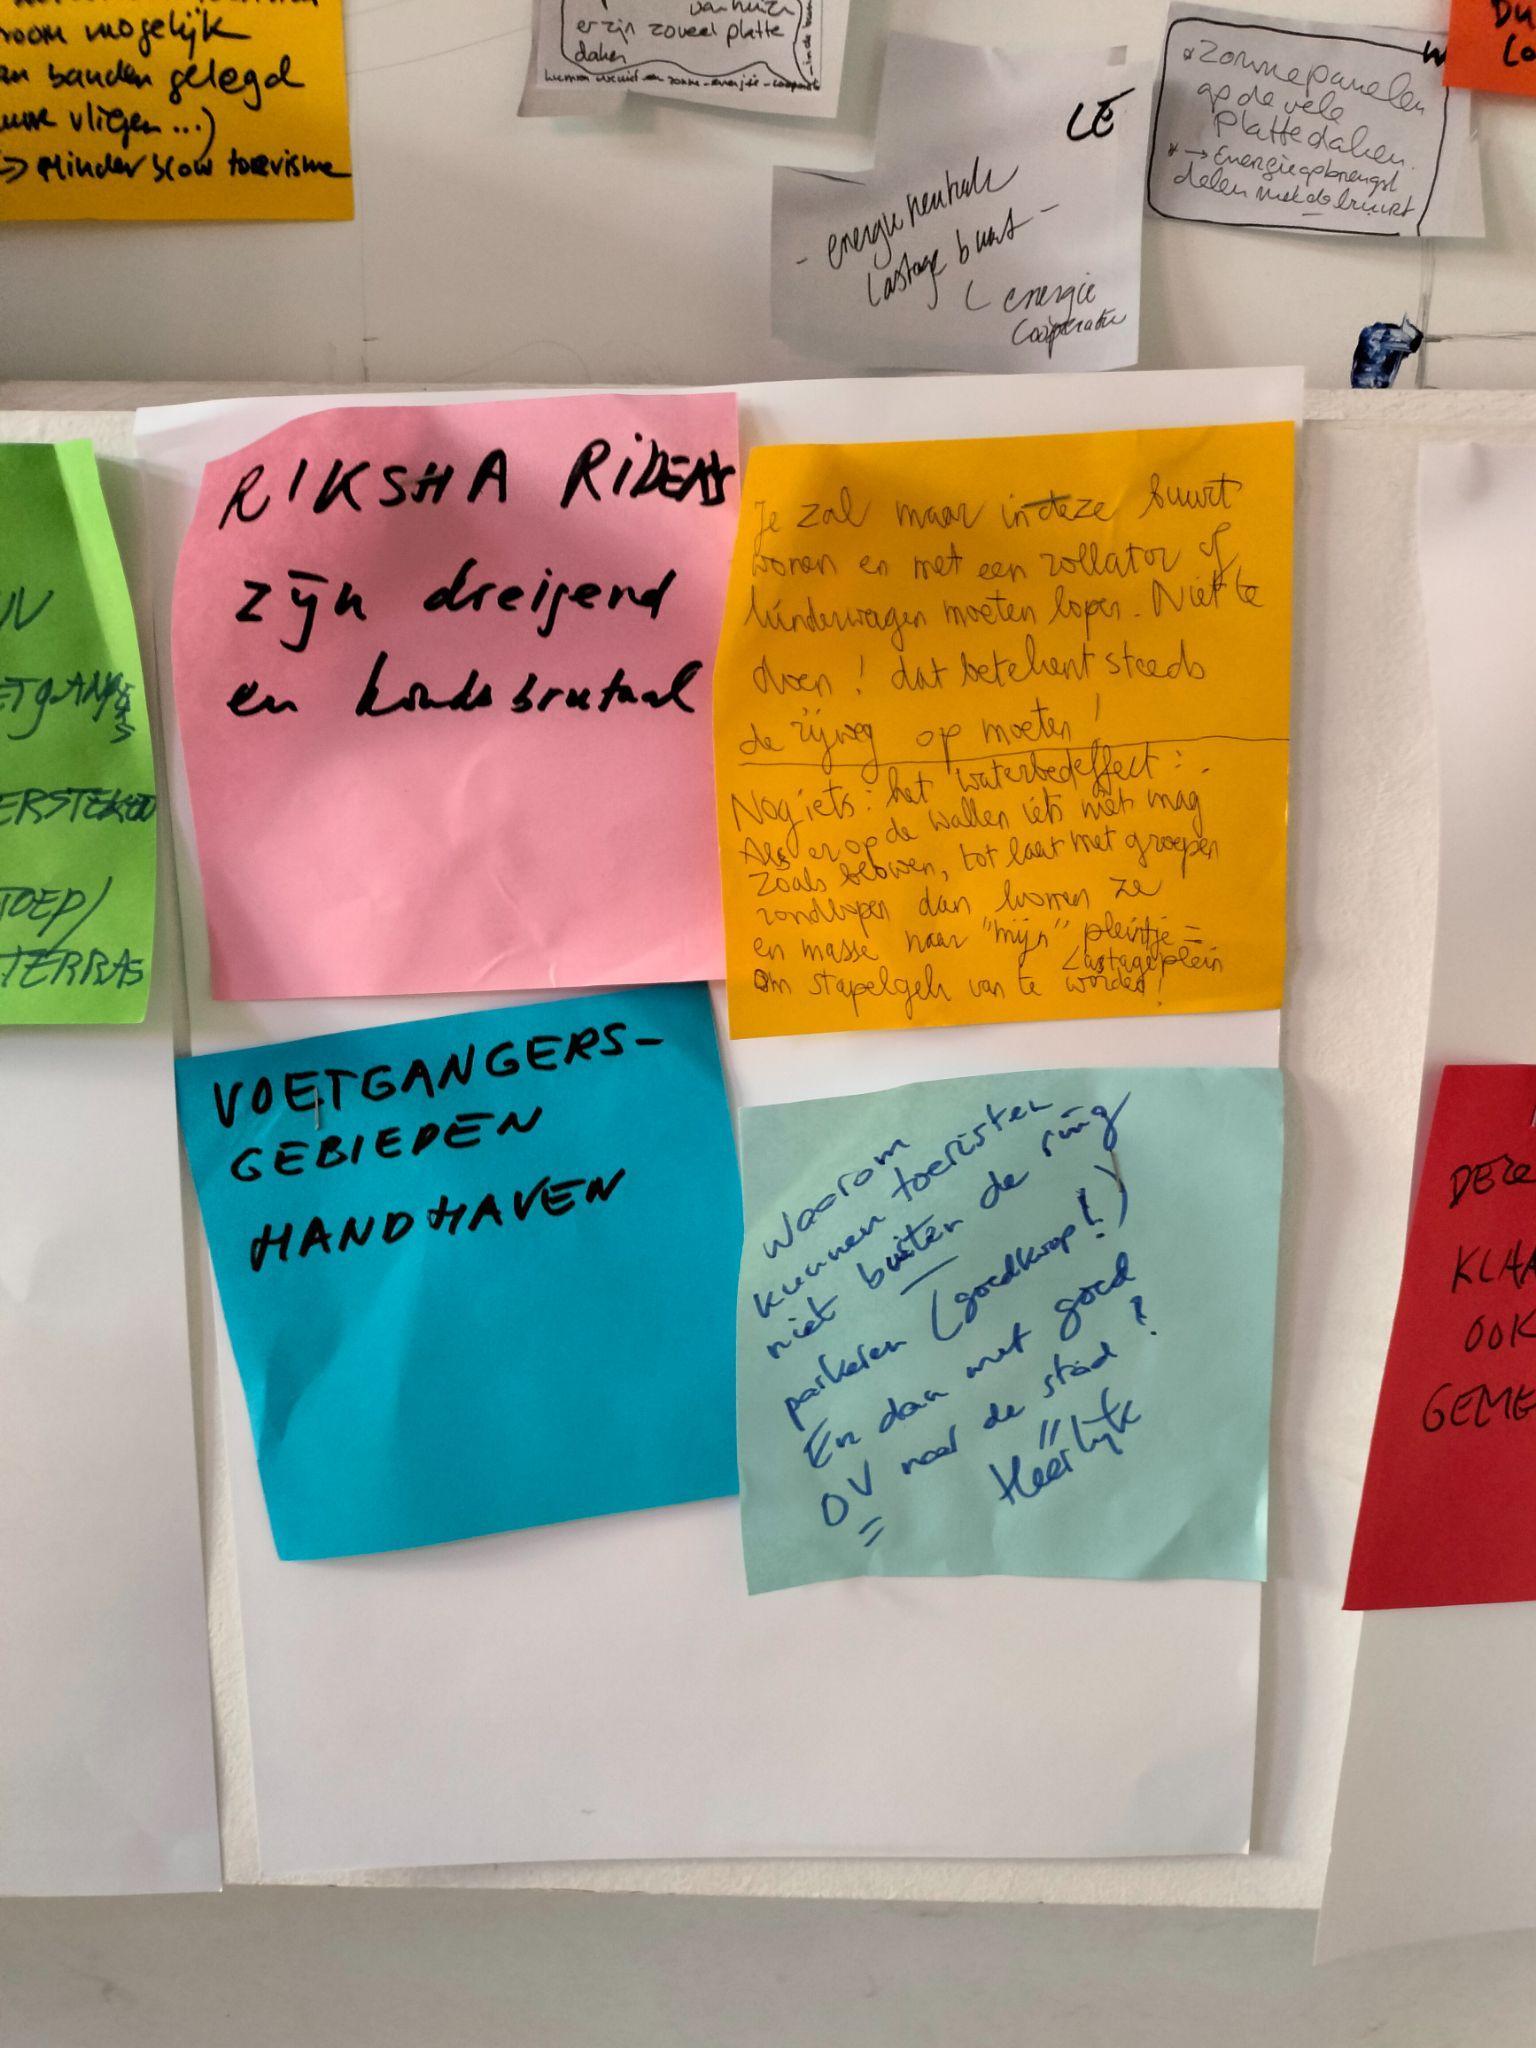 oom mogelijk
an banden gelegd
vliegen...)
→ Minder slow toerisme
er zijn zoveel platte
daken
LE
- energie neutrale
Lastage buurt -
( energie
coöperatie
* zonnepanelen
op de vele
platte daken.
* → Energieopbrengst
delen met de buurt
DU
RIKSHA RIDERS
zijn dreigend
en hondsbrutaal
Je zal maar in deze buurt
wonen en met een rollator of
kinderwagen moeten lopen. Niet te
doen! dat betekent steeds
de rijweg op moeten!
Nog iets: het waterbedeffect:
Als er op de wallen iets niet mag
zoals blowen, tot laat met groepen
rondlopen dan komen ze
en masse naar "mijn" pleintje =
Lastageplein
Om stapelgek van te worden!
ETGANGERS
ERSTEKEN
TOEP/
TERRAS
VOETGANGERS-
GEBIEDEN
HANDHAVEN
Waarom
kunnen toeristen
niet buiten de ring
parkeren (goedkoop!)
En dan met goed
OV naar de stad?
Heerlijk
DEZE
KLAA
OOK
GEME